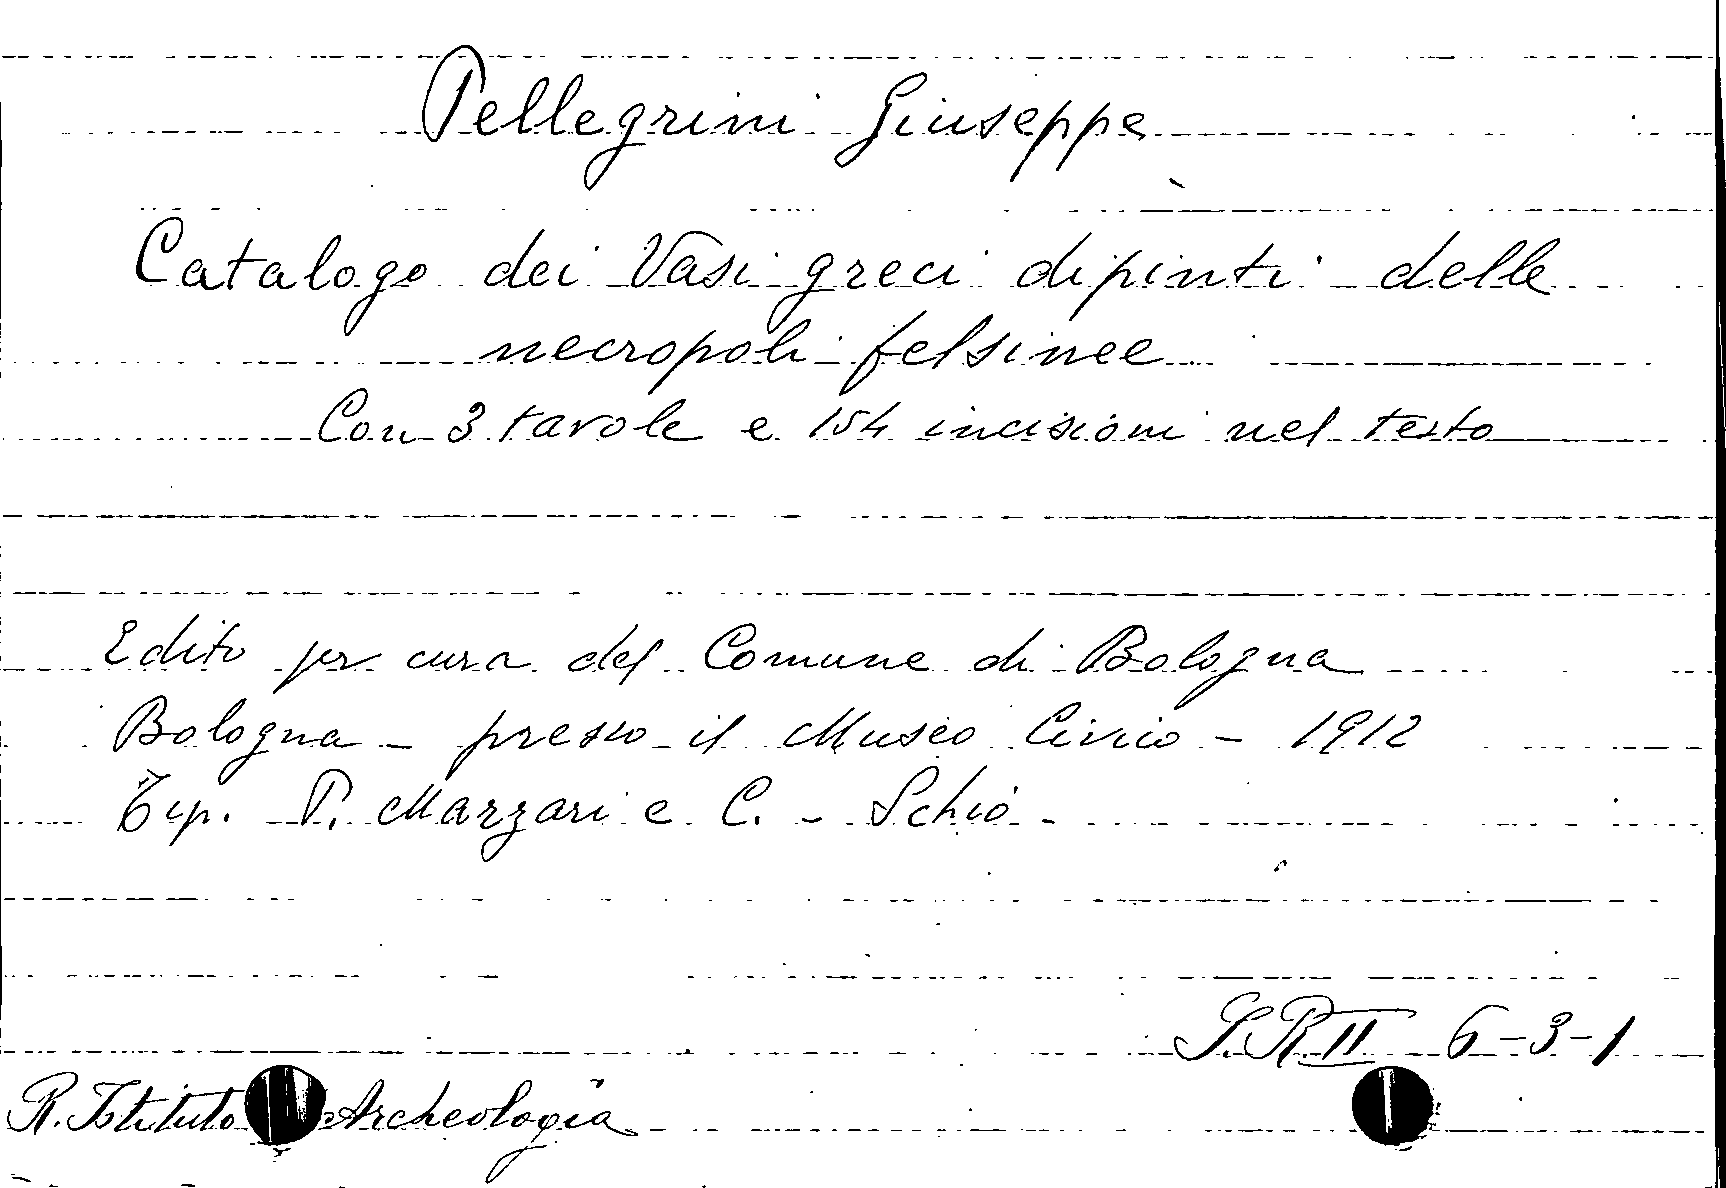 Pellegrini Giuseppe
Catalogo dei Vasi greci dipinti delle
necropoli felsinee
Con 3 tavole e 154 incisioni nel testo
Edito per cura del Comune di Bologna
Bologna - presso il Museo Civico - 1912
Tip. P. Marzari e C. - Schio -
S.R. II 6-3-1
R. Istituto Archeologia